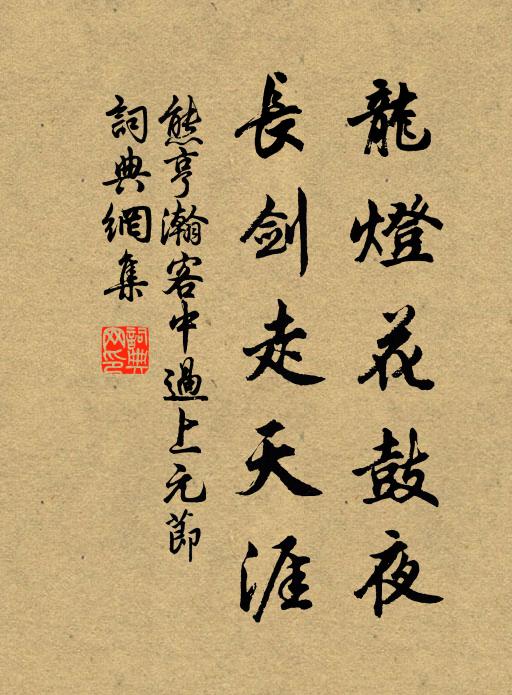 龍燈花鼓夜
長劍走天涯
熊亨瀚客中過上元節
詞典網集
詞典网印